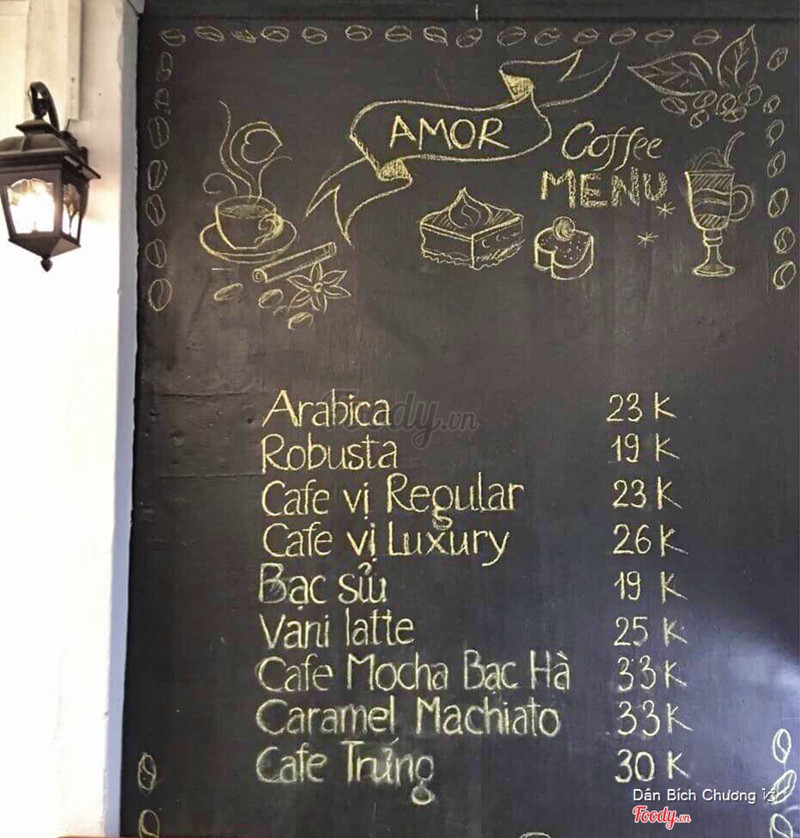 AMOR
Coffee
MENU
Arabica 23 K
Robusta 19 K
Cafe vị Regular 23 K
Cafe vị Luxury 26 K
Bạc sửu 19 K
Vani latte 25 K
Cafe Mocha Bạc Hà 33 K
Caramel Machiato 33 K
Cafe Trứng 30 K
Foody.vn
Dân Bích Chương
Foody.vn